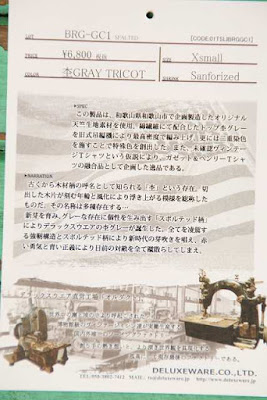 LOT
BRG-GC1
SPALTED
[CODE:01TSLJBRGGC1]
PRICE
¥6,800 税抜
SIZE
Xsmall
COLOR
杢GRAY TRICOT
Sanforized
●SPEC
この製品は、和歌山県和歌山市で企画製造したオリジナル
天竺生地素材を使用。綿繊維にて配合したトップ杢グレー
を旧式吊編機により最高密度で編み上げ、更には二重染色
を施すことで特殊色を創出した。また、未確認ヴィンテー
ジTシャツという仮説により、ガゼット&ヘンリーTシャツ
の融合品として企画した逸品である。
●NARRATION
古くから木材柄の呼名として知られる「杢」という存在。切
出した木片が刻む年輪と風化により浮き上がる模様を総称した
ものだ。その名称は多種存在する…
新芽を育み、グレーな存在に個性を生み出す「スポルテッド柄」
によりデラックスウエアの杢グレーが誕生した。全てを凌駕す
る強靭構造とスポルテッド柄により新時代の芽吹きを唱え、赤
い勇気と青い正義により目前の対敵を全て蹴散らしてしまえ。
である。
DELUXEWARE CO.,LTD.
http://www.deluxeware.jp